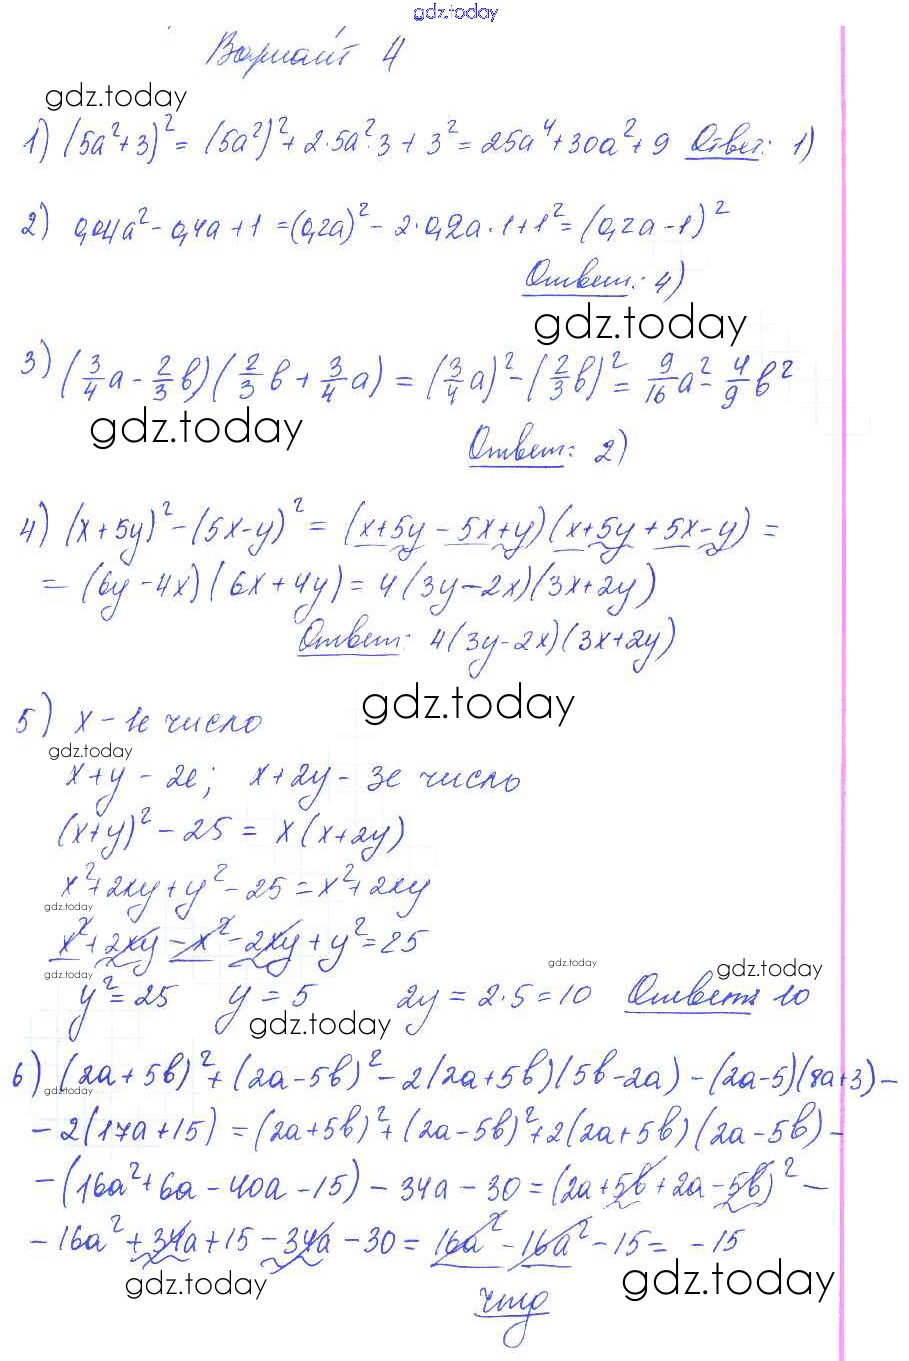 gdz.today
Вариант 4
gdz.today
1) (5a²+3)² = (5a²)² + 2·5a²·3 + 3² = 25a⁴+30a²+9 Ответ: 1)
2) 0,04a² - 0,4a + 1 = (0,2a)² - 2·0,2a·1+1² = (0,2a-1)²
Ответ: 4)
gdz.today
3) (3/4 a - 2/3 b)(2/3 b + 3/4 a) = (3/4 a)² - (2/3 b)² = 9/16 a² - 4/9 b²
gdz.today
Ответ: 2)
4) (x+5y)² - (5x-y)² = (x+5y - 5x+y)(x+5y+5x-y) =
= (6y-4x)(6x+4y) = 4(3y-2x)(3x+2y)
Ответ: 4(3y-2x)(3x+2y)
gdz.today
5) x - 1е число
gdz.today
x+y - 2е; x+2y - 3е число
(x+y)² - 25 = x(x+2y)
x²+2xy+y²-25 = x²+2xy
gdz.today
x²+2xy-x²-2xy+y²=25
gdz.today
gdz.today
gdz.today
y²=25 y=5 2y=2·5=10 Ответ: 10
gdz.today
6) (2a+5b)²+(2a-5b)²-2(2a+5b)(5b-2a)-(2a-5)(8a+3)-
gdz.today
-2(17a+15) = (2a+5b)²+(2a-5b)²+2(2a+5b)(2a-5b)-
-(16a²+6a-40a-15)-34a-30=(2a+5b+2a-5b)²-
-16a²+34a+15-34a-30=16a²-16a²-15=-15
gdz.today
gdz.today
чтд